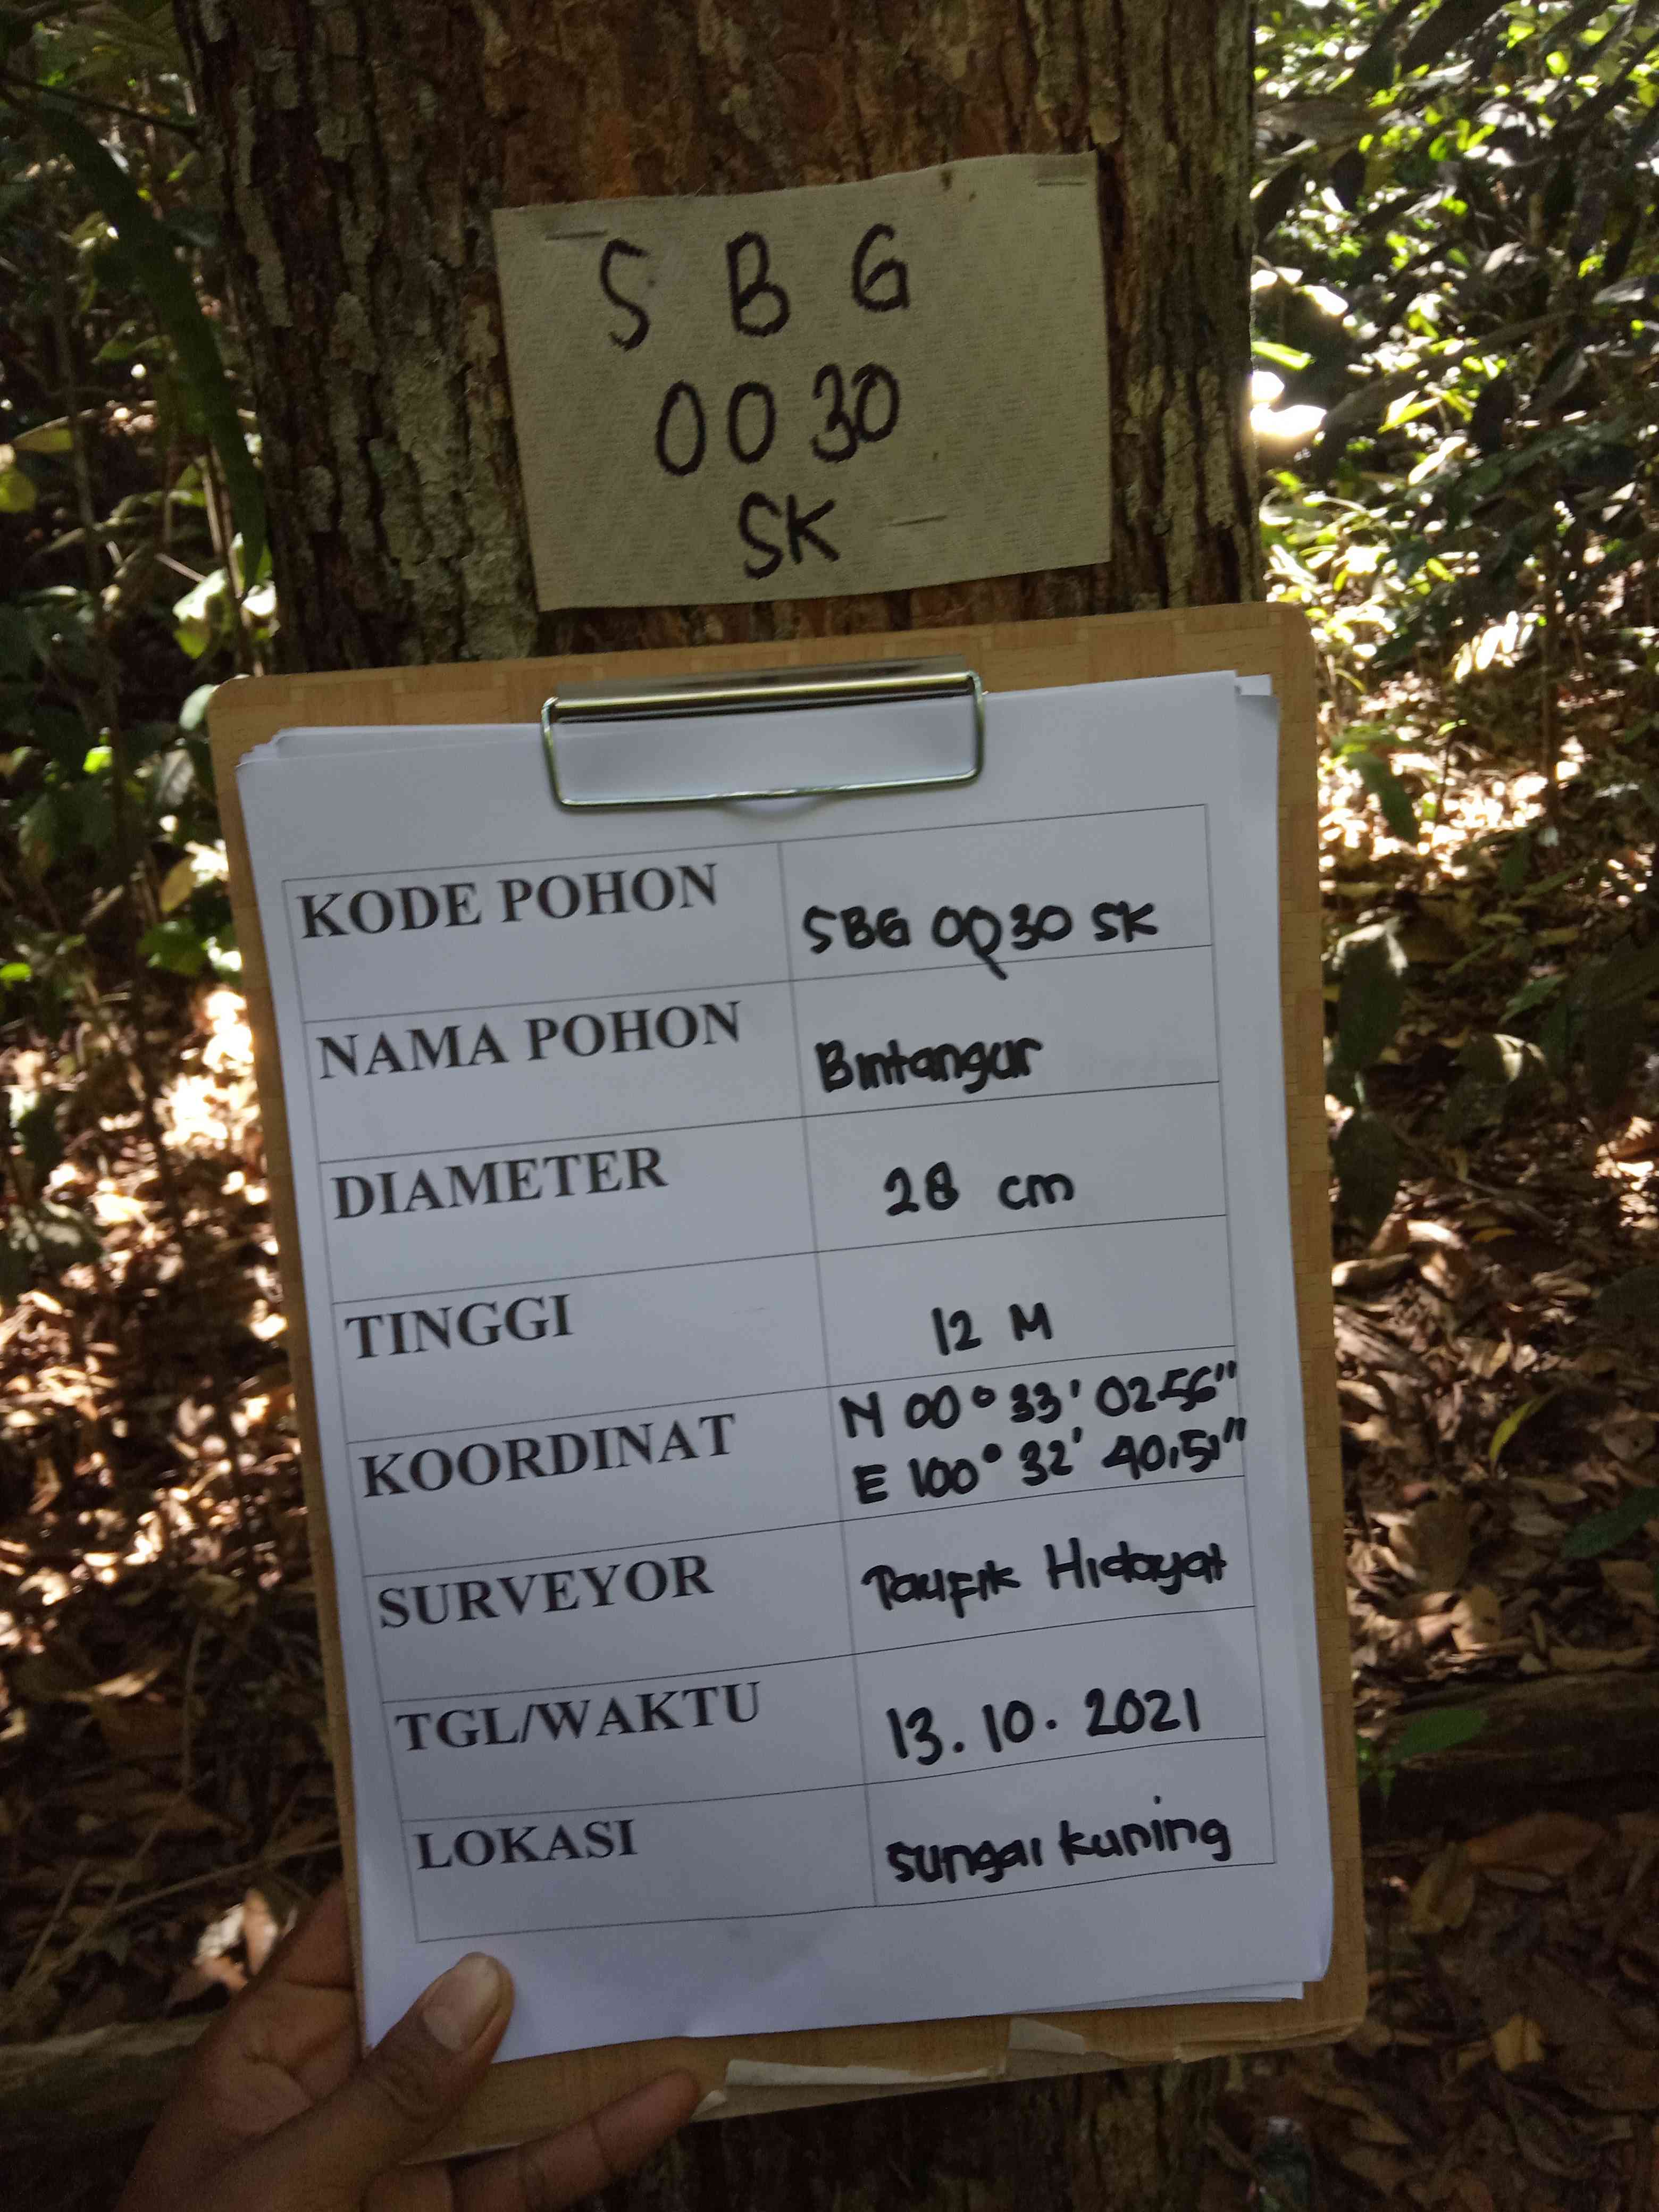 S B G
0030
SK
KODE POHON SBG 0030 SK
NAMA POHON Bintangur
DIAMETER 28 cm
TINGGI 12 M
KOORDINAT N 00° 33' 02.56"
E 100° 32' 40,51"
SURVEYOR Taufik Hidayat
TGL/WAKTU 13.10.2021
LOKASI Sungai kuning